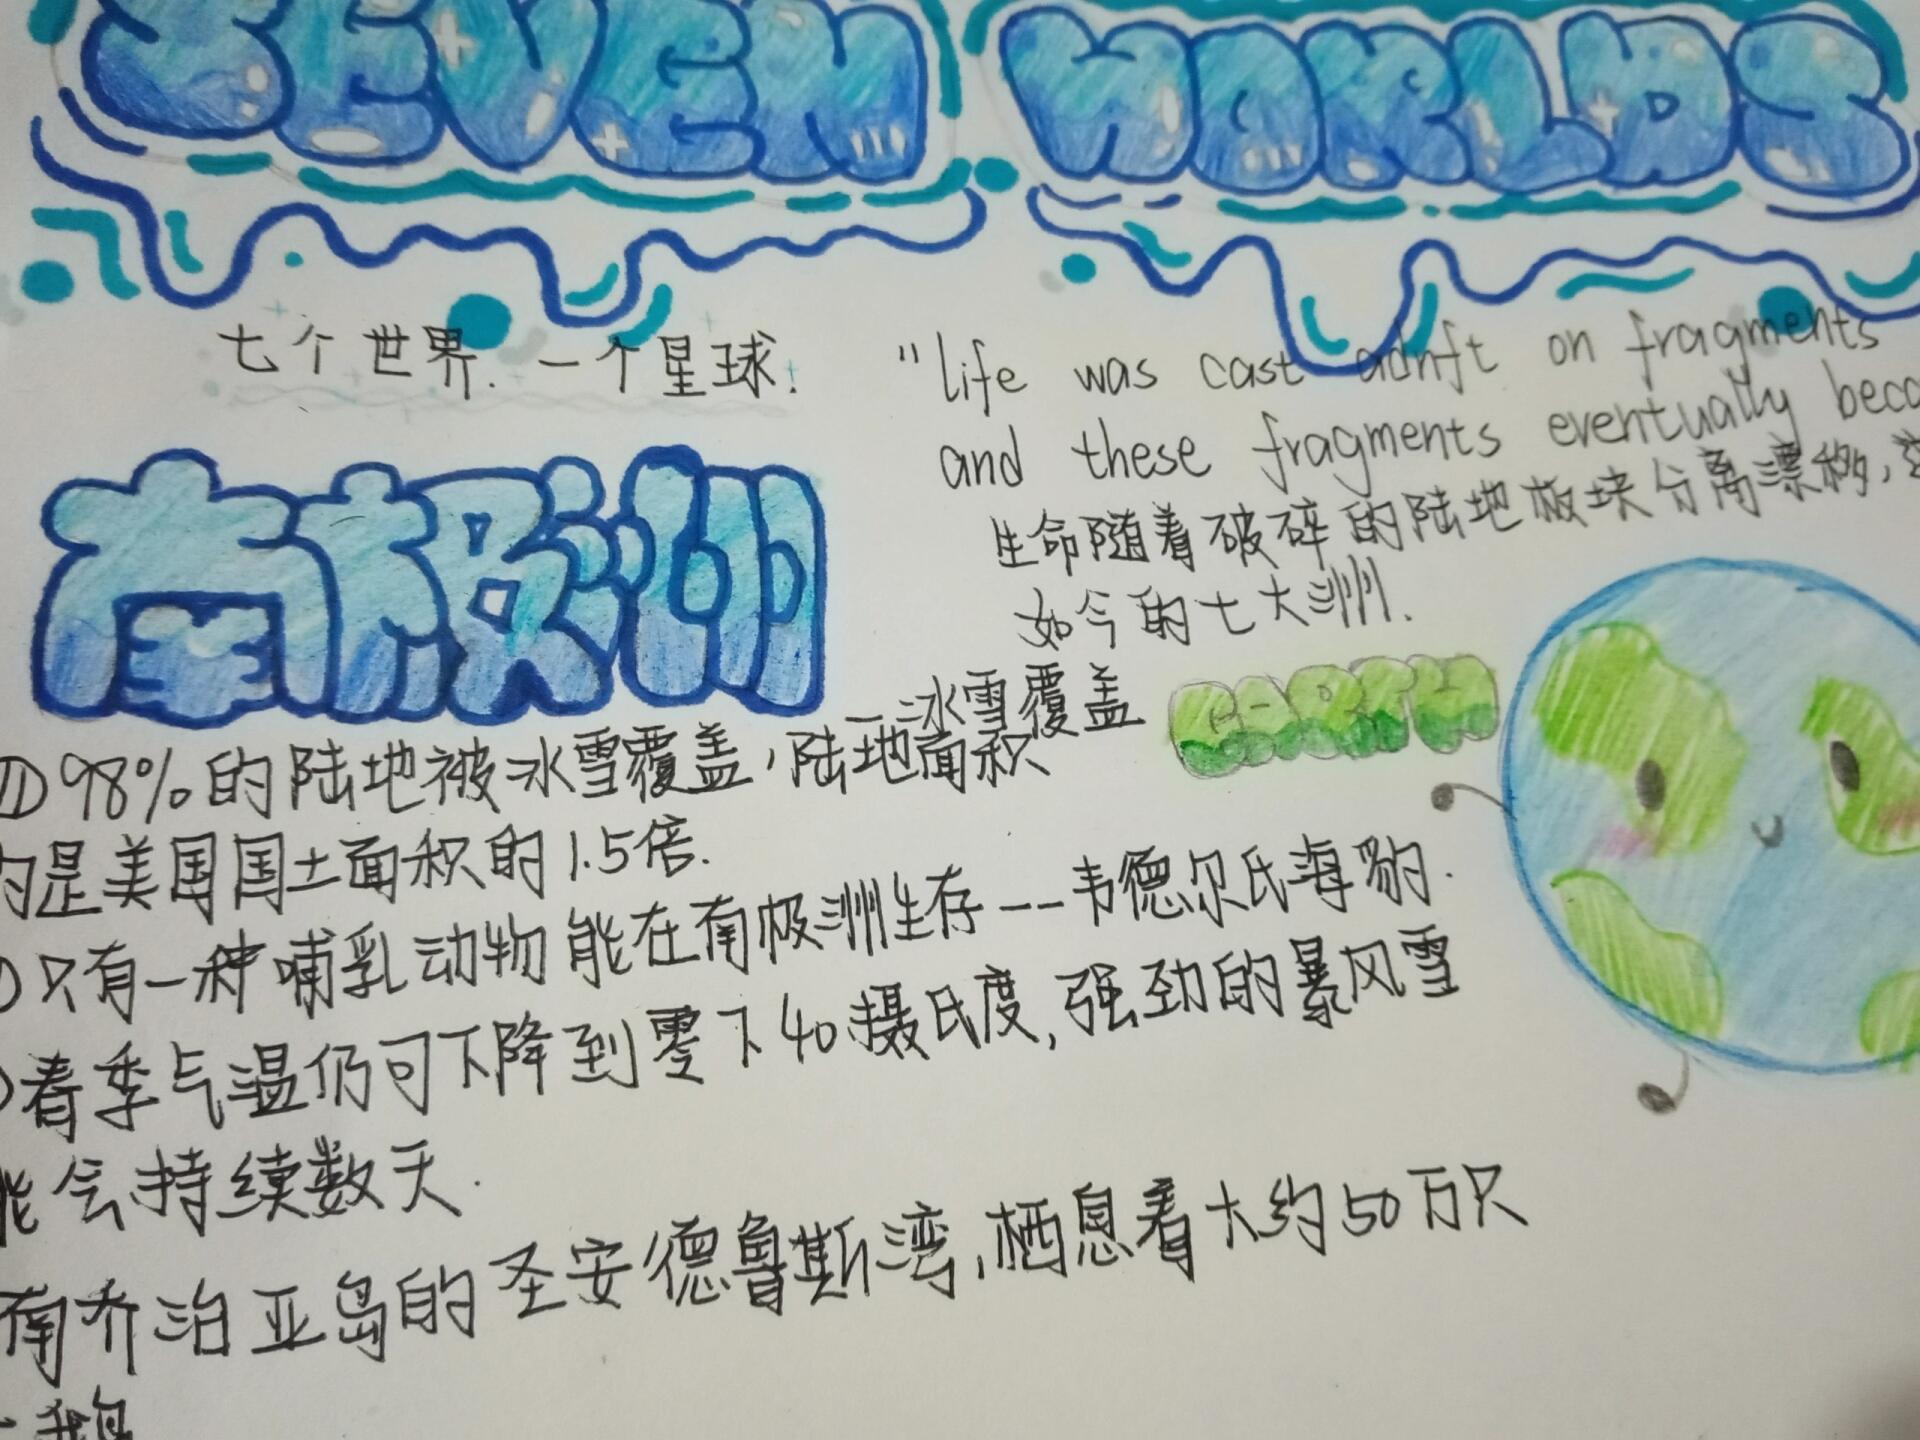 SEVEN WORLDS
七个世界.一个星球.
"life was cast adrift on fragments
and these fragments eventually beca
生命随着破碎的陆地板块分离漂移,
如今的七大洲.
南极洲
EARTH
—冰雪覆盖
①98%的陆地被冰雪覆盖,陆地面积
约是美国国土面积的1.5倍.
只有一种哺乳动物能在南极洲生存--韦德尔氏海豹.
春季气温仍可下降到零下40摄氏度,强劲的暴风雪
能会持续数天.
南乔治亚岛的圣安德鲁斯湾,栖息着大约50万只
企鹅